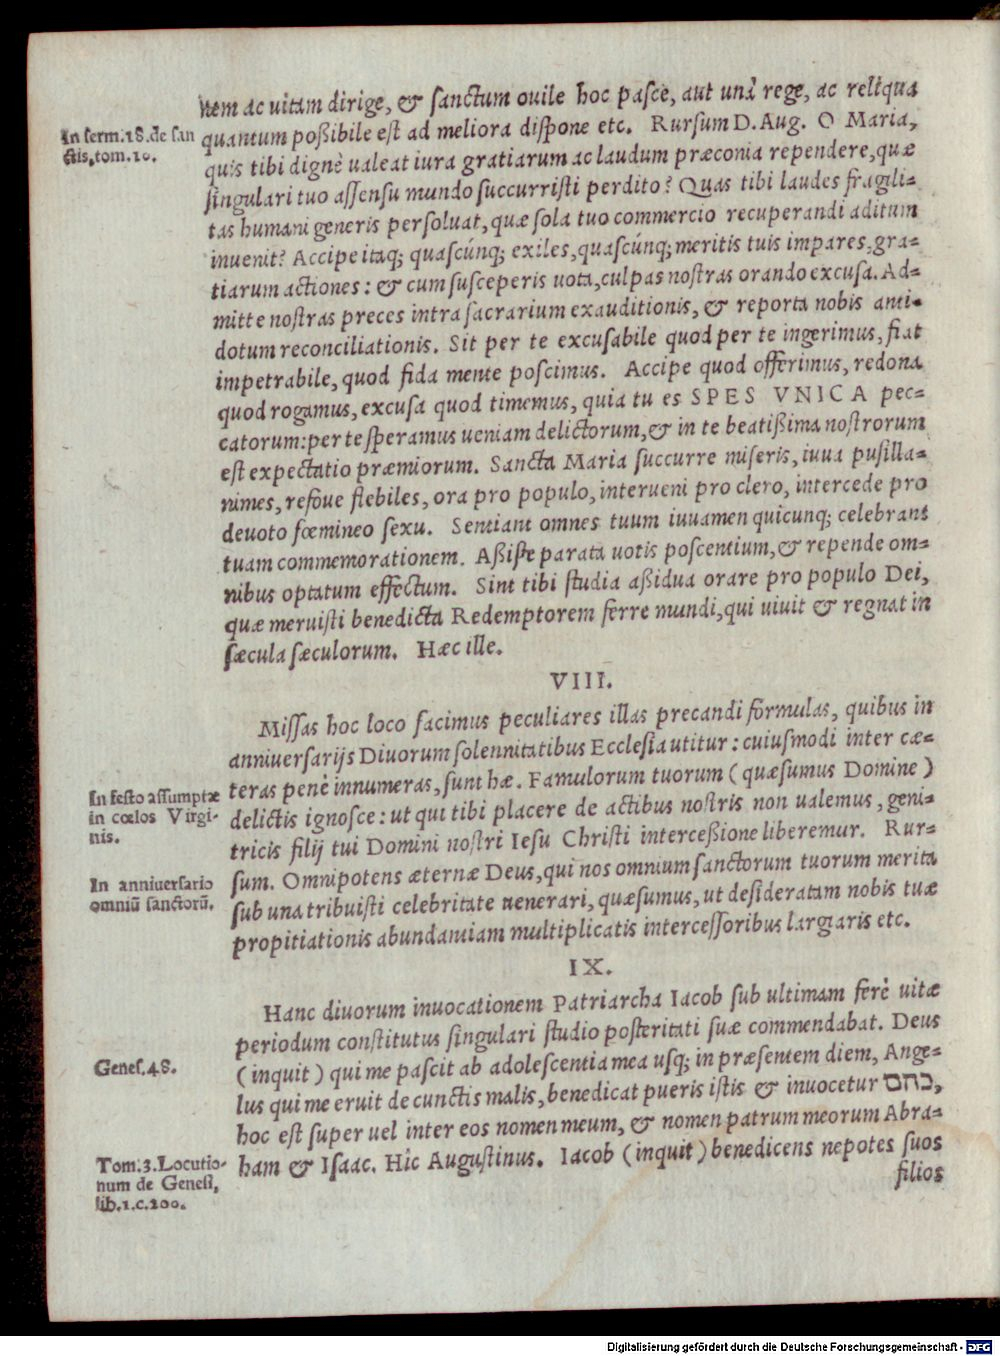 nem ac uitam dirige, & ſanctum ouile hoc paſce, aut unà rege, ac reliqua
In ſerm.18.de ſan
ctis,tom.10.
quantum poßibile eſt ad meliora diſpone etc. Rurſum D. Aug. O Maria,
quis tibi dignè ualeat iura gratiarum ac laudum præconia rependere, quæ
ſingulari tuo aſſenſu mundo ſuccurriſti perdito? Quas tibi laudes fragili-
tas humani generis perſoluat, quæ ſola tuo commercio recuperandi aditum
inuenit? Accipe itaq; quaſcúnq; exiles, quaſcúnq; meritis tuis impares, gra-
tiarum actiones: & cum ſuſceperis uota, culpas noſtras orando excuſa. Ad-
mitte noſtras preces intra ſacrarium exauditionis, & reporta nobis anti-
dotum reconciliationis. Sit per te excuſabile quod per te ingerimus, fiat
impetrabile, quod fida mente poſcimus. Accipe quod offerimus, redona
quod rogamus, excuſa quod timemus, quia tu es SPES VNICA pec-
catorum: per te ſperamus ueniam delictorum, & in te beatißima noſtrorum
eſt expectatio præmiorum. Sancta Maria ſuccurre miſeris, iuua puſilla-
nimes, refoue flebiles, ora pro populo, interueni pro clero, intercede pro
deuoto fœmineo ſexu. Sentiant omnes tuum iuuamen quicunq; celebrant
tuam commemorationem. Aßiſte parata uotis poſcentium, & repende om-
nibus optatum effectum. Sint tibi ſtudia aßidua orare pro populo Dei,
quæ meruiſti benedicta Redemptorem ferre mundi, qui uiuit & regnat in
ſæcula ſæculorum. Hæc ille.
VIII.
Miſſas hoc loco facimus peculiares illas precandi formulas, quibus in
anniuerſarijs Diuorum ſolennitatibus Eccleſia utitur: cuiuſmodi inter cæ-
teras penè innumeras, ſunt hæ. Famulorum tuorum (quæſumus Domine)
In feſto aſſumptæ
in cœlos Virgi-
nis.
delictis ignoſce: ut qui tibi placere de actibus noſtris non ualemus, geni-
tricis filij tui Domini noſtri Ieſu Chriſti interceßione liberemur. Rur-
ſum. Omnipotens æternæ Deus, qui nos omnium ſanctorum tuorum merita
In anniuerſario
omniū ſanctorū.
ſub una tribuiſti celebritate uenerari, quæſumus, ut deſideratam nobis tuæ
propitiationis abundantiam multiplicatis interceſſoribus largiaris etc.
IX.
Hanc diuorum inuocationem Patriarcha Iacob ſub ultimam ferè uitæ
periodum conſtitutus ſingulari ſtudio poſteritati ſuæ commendabat. Deus
Geneſ.48.
(inquit) qui me paſcit ab adoleſcentia mea uſq; in præſentem diem, Ange-
lus qui me eruit de cunctis malis, benedicat pueris iſtis & inuocetur בהם,
hoc eſt ſuper uel inter eos nomen meum, & nomen patrum meorum Abra-
ham & Iſaac. Hîc Auguſtinus. Iacob (inquit) benedicens nepotes ſuos
Tom.3.Locutio-
num de Geneſi,
lib.1.c.200.
filios
Digitalisierung gefördert durch die Deutsche Forschungsgemeinschaft - DFG